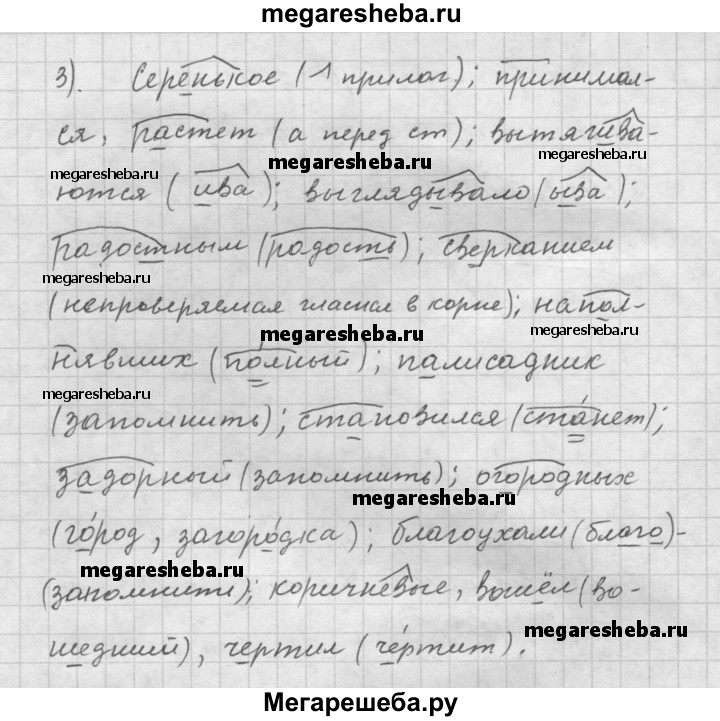 megaresheba.ru
3). Серенькое (1 прилаг); принимал-
ся, растет (а перед ст); вытягива-
megaresheba.ru
megaresheba.ru
megaresheba.ru
ются (ива); выглядывало (ыва);
радостным (радость); сверканием
megaresheba.ru
(непроверяемая гласная в корне); напол-
megaresheba.ru
megaresheba.ru
нявших (полный); палисадник
megaresheba.ru
(запомнить); становился (станет);
задорный (запомнить); огородных
megaresheba.ru
(город, загородка); благоухали (благо)-
megaresheba.ru
(запомнить); коричневые, вошёл (во-
шедший), чертил (чертит).
megaresheba.ru
Мегарешеба.ру